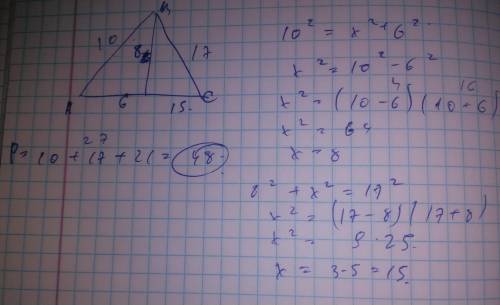 B
10
8
17
A
6
15.
C
P = 10 + 17 + 21 = 48.
27
10² = x² + 6²
x² = 10² - 6²
x² = (10 - 6)(10 + 6)
4
16
x² = 64
x = 8
8² + x² = 17²
x² = (17 - 8)(17 + 8)
x² = 9 · 25.
x = 3 · 5 = 15.